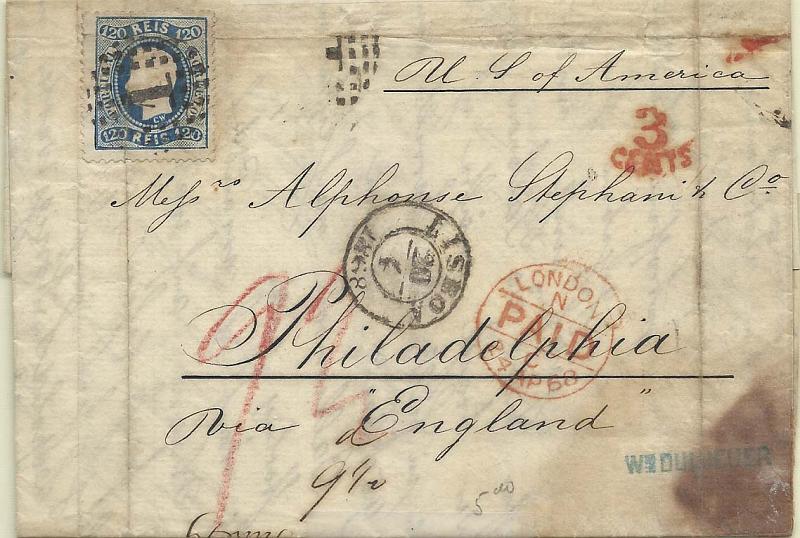 120 REIS 120
CW
120 REIS 120
1
U. S of America
3
CENTS
Messrs Alphonse Stephani & Co
LISBOA
20
LONDON
N
PAID
AP 68
Philadelphia
via "England"
9 1/2
5.00
Wm